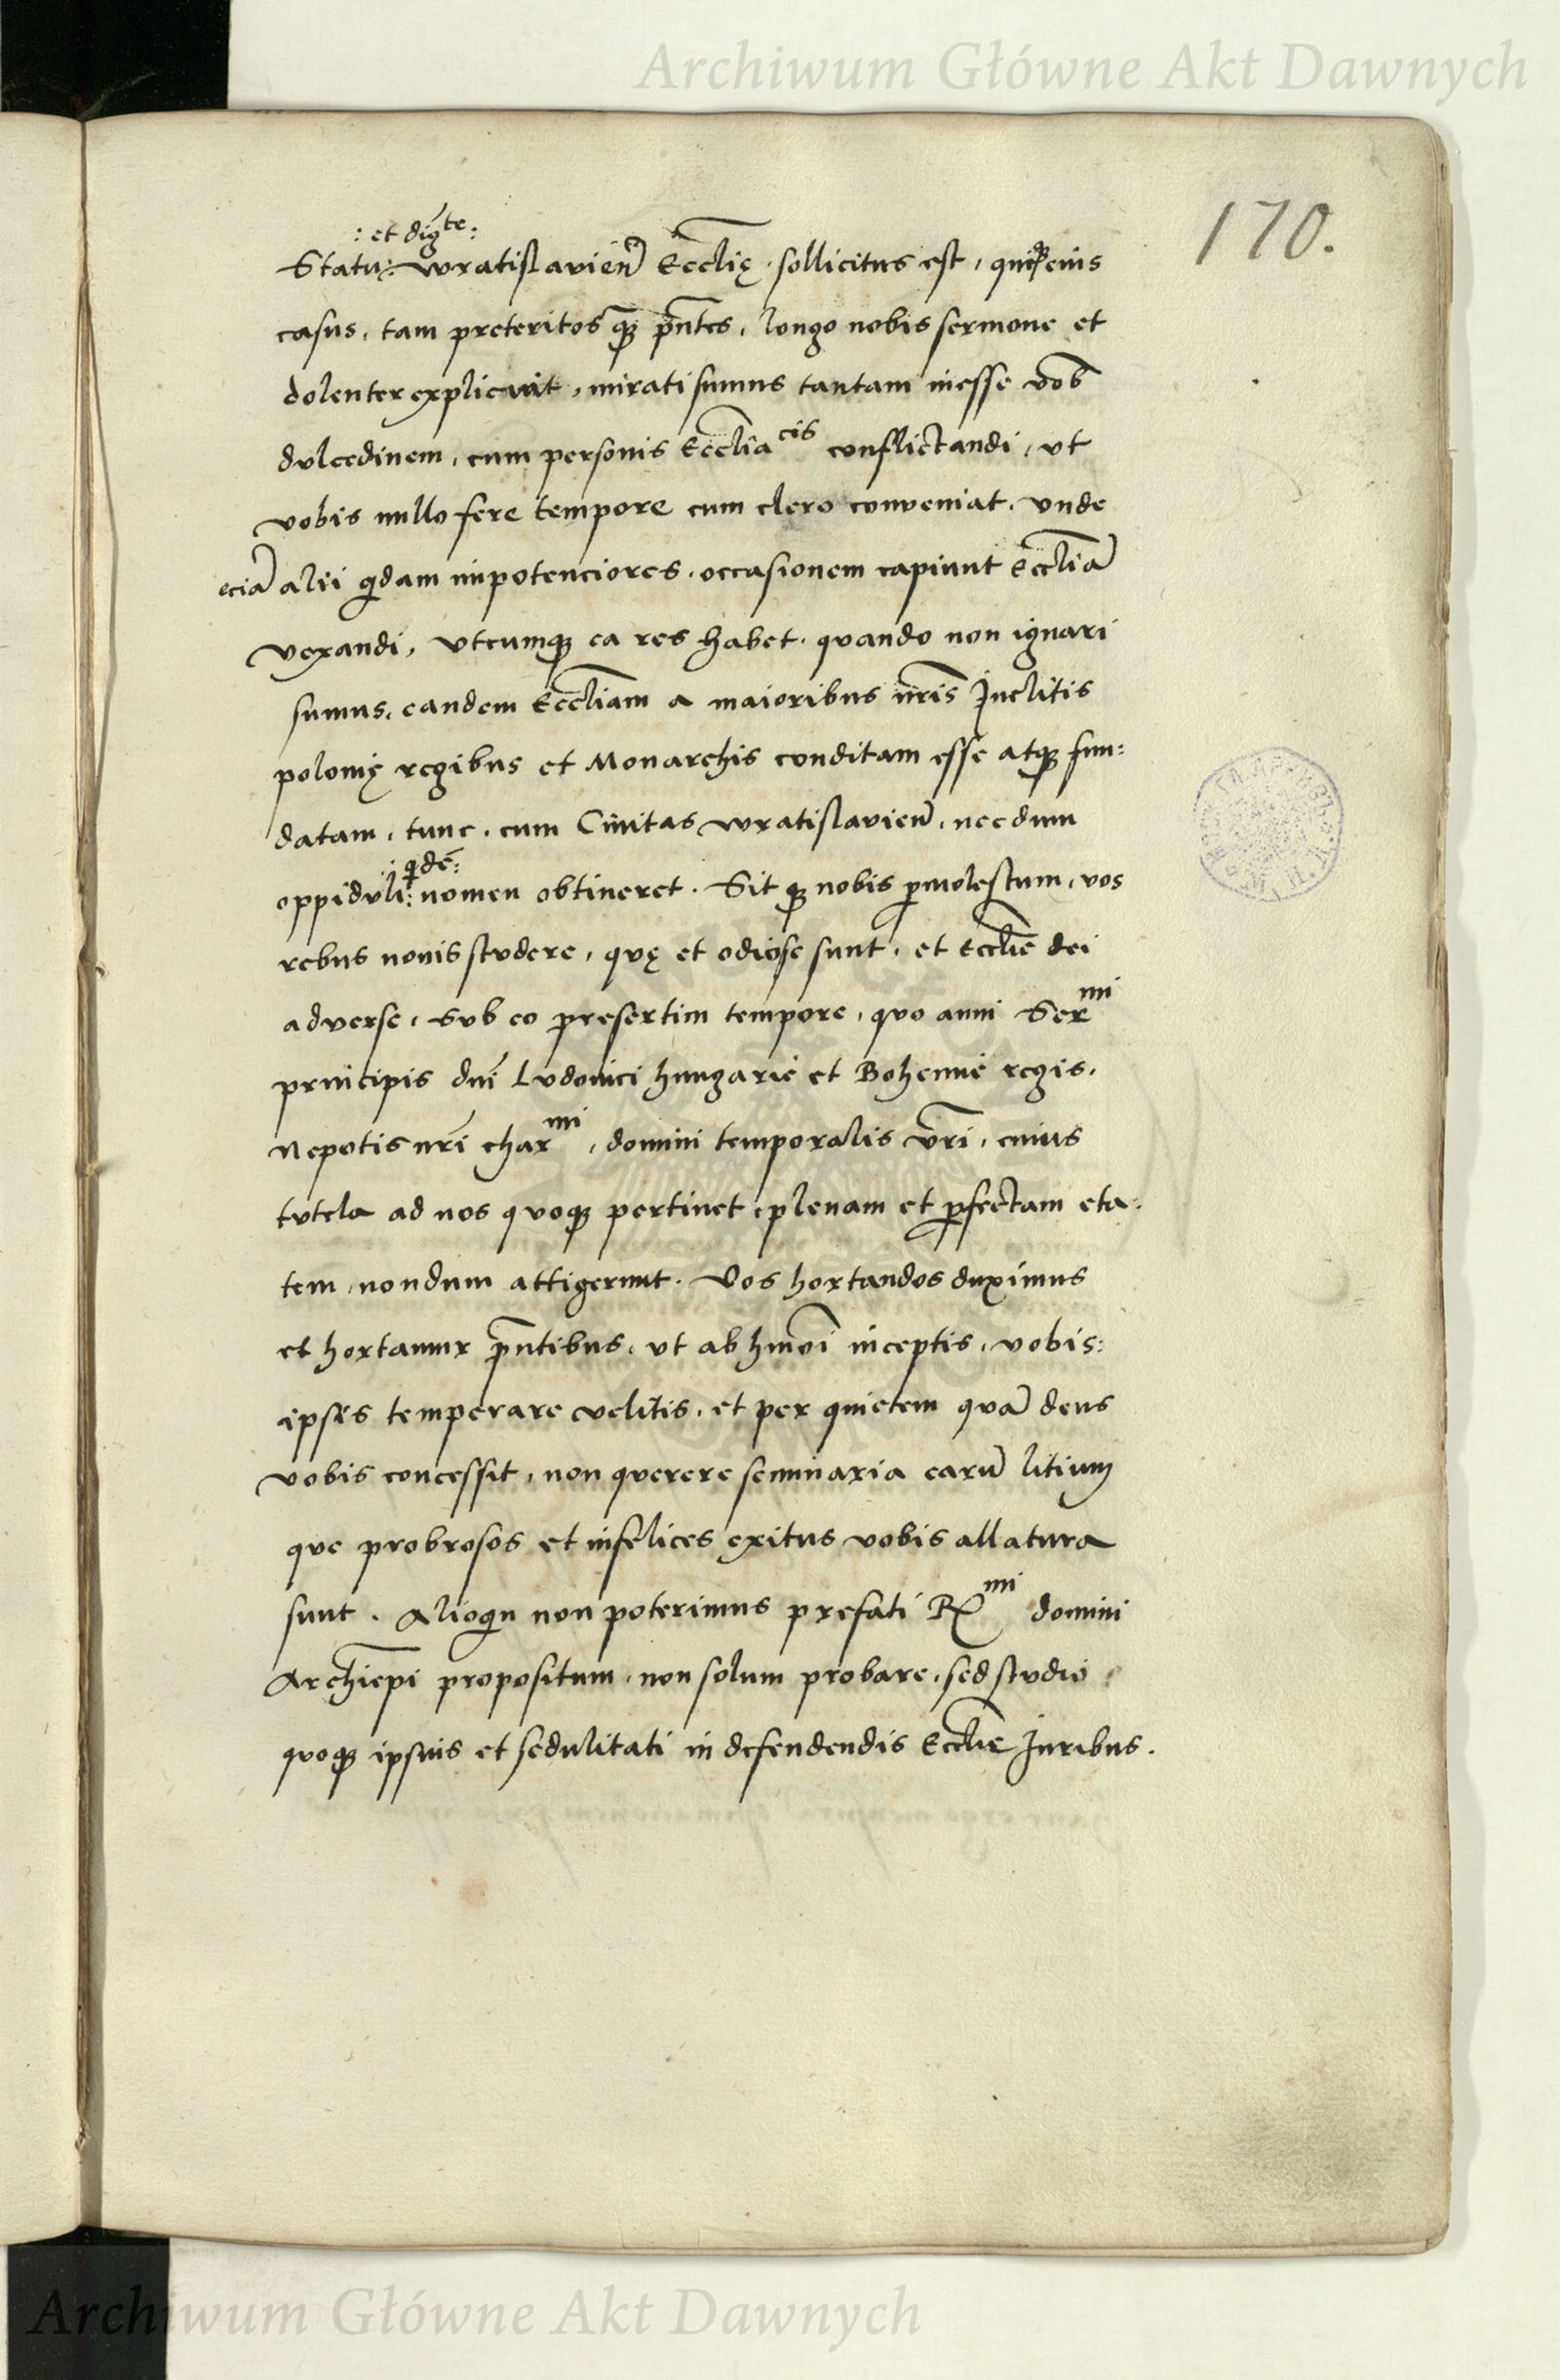 Archiwum Główne Akt Dawnych
170.
: et dig̃te:
Statu: wratislavien̄ Ecclīę sollicitus est, quiqꝫ eius
casus, tam preteritos qꝫ p̄ntes, longo nobis sermone et
dolenter explicuit, mirati sumus tantam inesse vob̄
dulcedinem, cum personis Ecclīacis conflictandi, ut
vobis nullo fere tempore cum clero conveniat. Unde
eciā alii qdam impotenciores occasionem capiunt Ecclīā
vexandi, Utcumqꝫ ea res habet. quando non ignari
sumus, eandem Ecclīam a maioribus nr̄is Inclitis
polonię regibus et Monarchis conditam esse atqꝫ fun:
datam, tunc, cum Civitas wratislavien̄, necdum
: qdē:
oppiduli: nomen obtineret. Sit qꝫ nobis ꝑmolestum, vos
rebus novis studere, quę et odiose sunt, et Ecclīe dei
adverse, Sub eo presertim tempore, quo anni Sermi
principis dn̄i Ludovici hungarie et Bohemie regis,
Nepotis nr̄i charmi, domini temporalis vr̄i, cuius
tutela ad nos quoqꝫ pertinet, plenam et ꝑfectam eta:
tem, nondum attigerunt. Vos hortandos duximus
et hortamur p̄ntibus, ut ab hm̄oi inceptis, vobis:
ipsis temperare velitis, et per quietem quā deus
vobis concessit, non querere seminaria earū litium
que probrosos et infelices exitus vobis allatura
sunt. Alioqn non poterimus prefati Rmi domini
Archiepī propositum, non solum probare, sed studio
quoqꝫ ipsius et sedulitati in defendendis Ecclīe Juribus.
Archiwum Główne Akt Dawnych